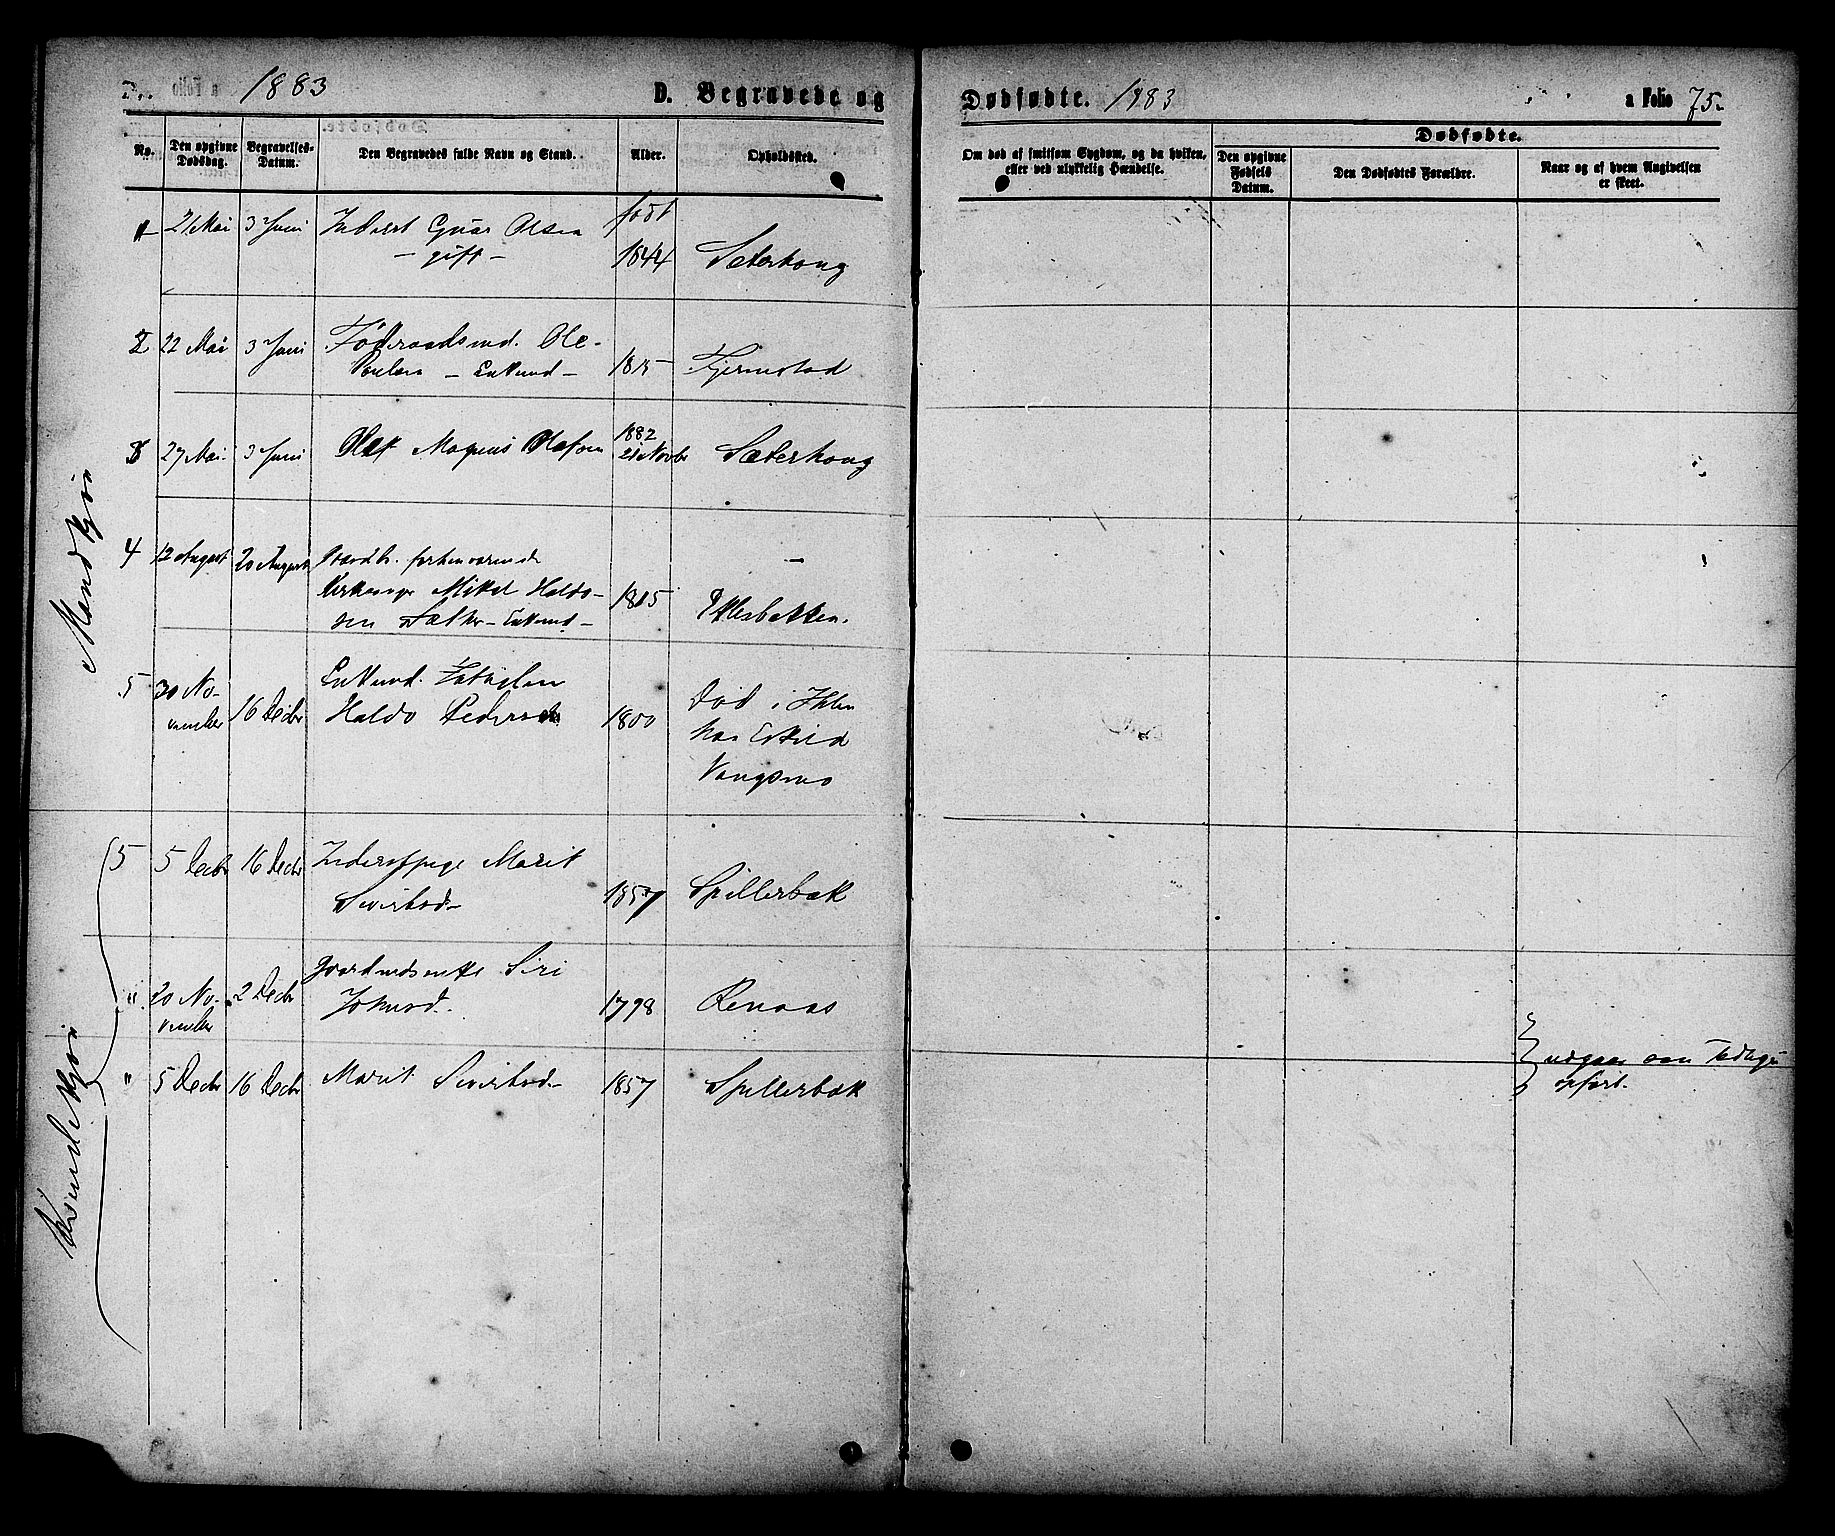 1883
D. Begravede og
Dødfødte. 1883
a Folio 75.
No.
Den opgivne Dødsdag.
Begravelses-Datum.
Den Begravedes fulde Navn og Stand.
Alder.
Opholdssted.
Om død af smitsom Sygdom, og da hvilken, eller ved ulykkelig Hændelse.
Dødfødte.
Den opgivne Fødsels Datum.
Den Dødfødtes Forældre.
Naar og af hvem Angivelsen er skeet.
Mandkjøn
1 21 Mai 3 Juni Inderst Olsen født
- gift - 1844 Sæterhoug
2 22 Mai 3 Juni Føderaadsmd. Ole
Enkemd - 1815 Fjermstad
3 27 Mai 3 Juni Olaf Magnus Olafsen 1882
21 Novbr Sæterhoug
4 12 August 20 August Gaardbr. forhenværende
Kirkesanger Mikal Haldo-
sen Sæther - Enkemd - 1815
5 30 No-
vember 16 Decbr Enkemd.
Haldo Pedersen 1800 Død i Ihlen
hos Eskild
Vangsmo
Kvindekjøn
5 5 Decbr 16 Decbr Inderstpige Marit
Sivertsd - 1857 Spillerbæk
" 20 No-
vember 2 Decbr Gaardmdsenke Siri
Jonsd. 1798 Renaas
" 5 Decbr 16 Decbr Marit Sivertsd - 1857 Spillerbæk
udgaar
opført.